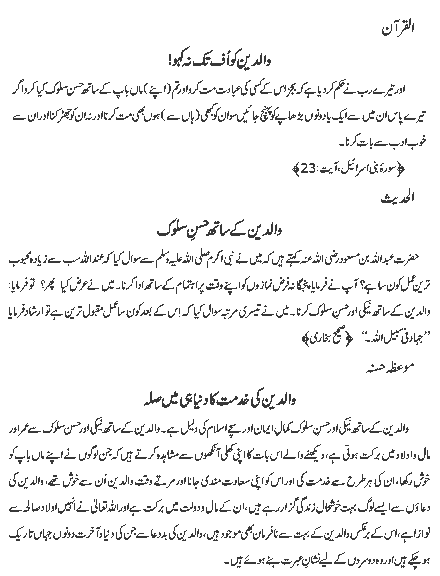 القرآن
والدین کو اُف تک نہ کہو!
اور تیرے رب نے حکم کر دیا ہے کہ بجز اس کے کسی کی عبادت مت کرو اور تم (اپنے) ماں باپ کے ساتھ حسن سلوک کیا کرو اگر
تیرے پاس ان میں سے ایک یا دونوں بڑھاپے کو پہنچ جائیں سو ان کو کبھی (ہاں سے) ہوں بھی مت کرنا اور نہ ان کو جھڑکنا اور ان سے
خوب ادب سے بات کرنا۔
﴿سورۂ بنی اسرائیل، آیت:23﴾
الحدیث
والدین کے ساتھ حسنِ سلوک
حضرت عبداللہ بن مسعود رضی اللہ عنہ کہتے ہیں کہ میں نے نبی اکرم صلی اللہ علیہ وسلم سے سوال کیا کہ عند اللہ سب سے زیادہ محبوب
ترین عمل کون سا ہے؟ آپ نے فرمایا، پنجگانہ فرض نمازوں کو اپنے وقت پر اہتمام کے ساتھ ادا کرنا۔ میں نے عرض کیا پھر؟ تو فرمایا:
والدین کے ساتھ نیکی اور حسن سلوک کرنا۔ میں نے تیسری مرتبہ سوال کیا کہ اس کے بعد کون سا عمل مقبول ترین ہے تو ارشاد فرمایا
’’جہاد فی سبیل اللہ۔‘‘ ﴿صحیح بخاری﴾
موعظہ حسنہ
والدین کی خدمت کا دنیا ہی میں صلہ
والدین کے ساتھ نیکی اور حسن سلوک کمال ایمان اور سچے اسلام کی دلیل ہے۔ والدین کے ساتھ نیکی اور حسن سلوک سے عمر اور
مال و اولاد میں برکت ہوتی ہے، دیکھنے والے اس بات کا اپنی کھلی آنکھوں سے مشاہدہ کرتے ہیں کہ جن لوگوں نے اپنے ماں باپ کو
خوش رکھا، ان کی ہر طرح سے خدمت کی اور اس کو اپنی سعادت مندی جانا اور مرتے وقت والدین اُن سے خوش تھے، والدین کی
دعاؤں سے ایسے لوگ بہت خوشحال زندگی گزار رہے ہیں، ان کے مال و دولت میں برکت ہے اور اللہ تعالیٰ نے انہیں اولاد صالحہ سے
نوازا ہے، اس کے برعکس والدین کے بہت سے نافرمان بھی موجود ہیں، والدین کی بددعا سے جن کی دنیا و آخرت دونوں جہاں تاریک
ہو چکے ہیں اور وہ دوسروں کے لیے نشانِ عبرت بنے ہوئے ہیں۔